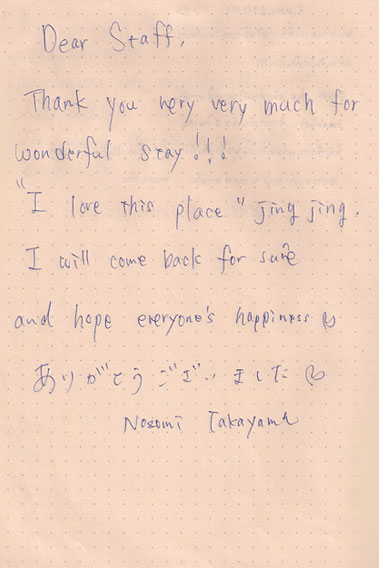 Dear Staff,
Thank you very very much for
wonderful stay!!!
"I love this place" jing jing.
I will come back for sure
and hope everyone's happiness ♡
ありがとうございました ♡
Nozomi Takayama